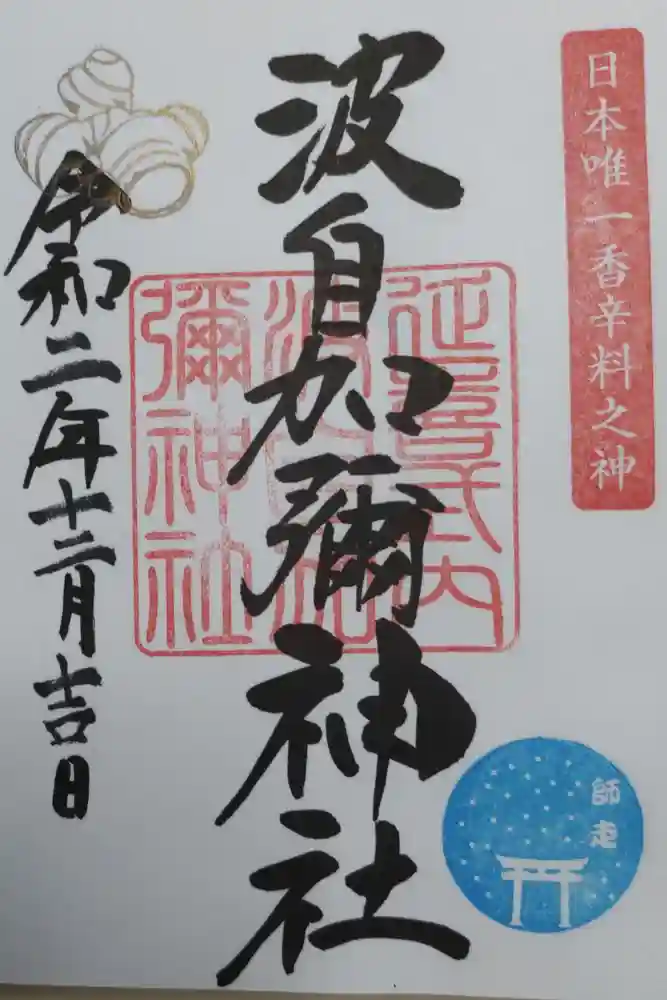 日本唯一香辛料之神
波自加彌神社
延喜式内
波自加
彌神社
師走
令和二年十二月吉日